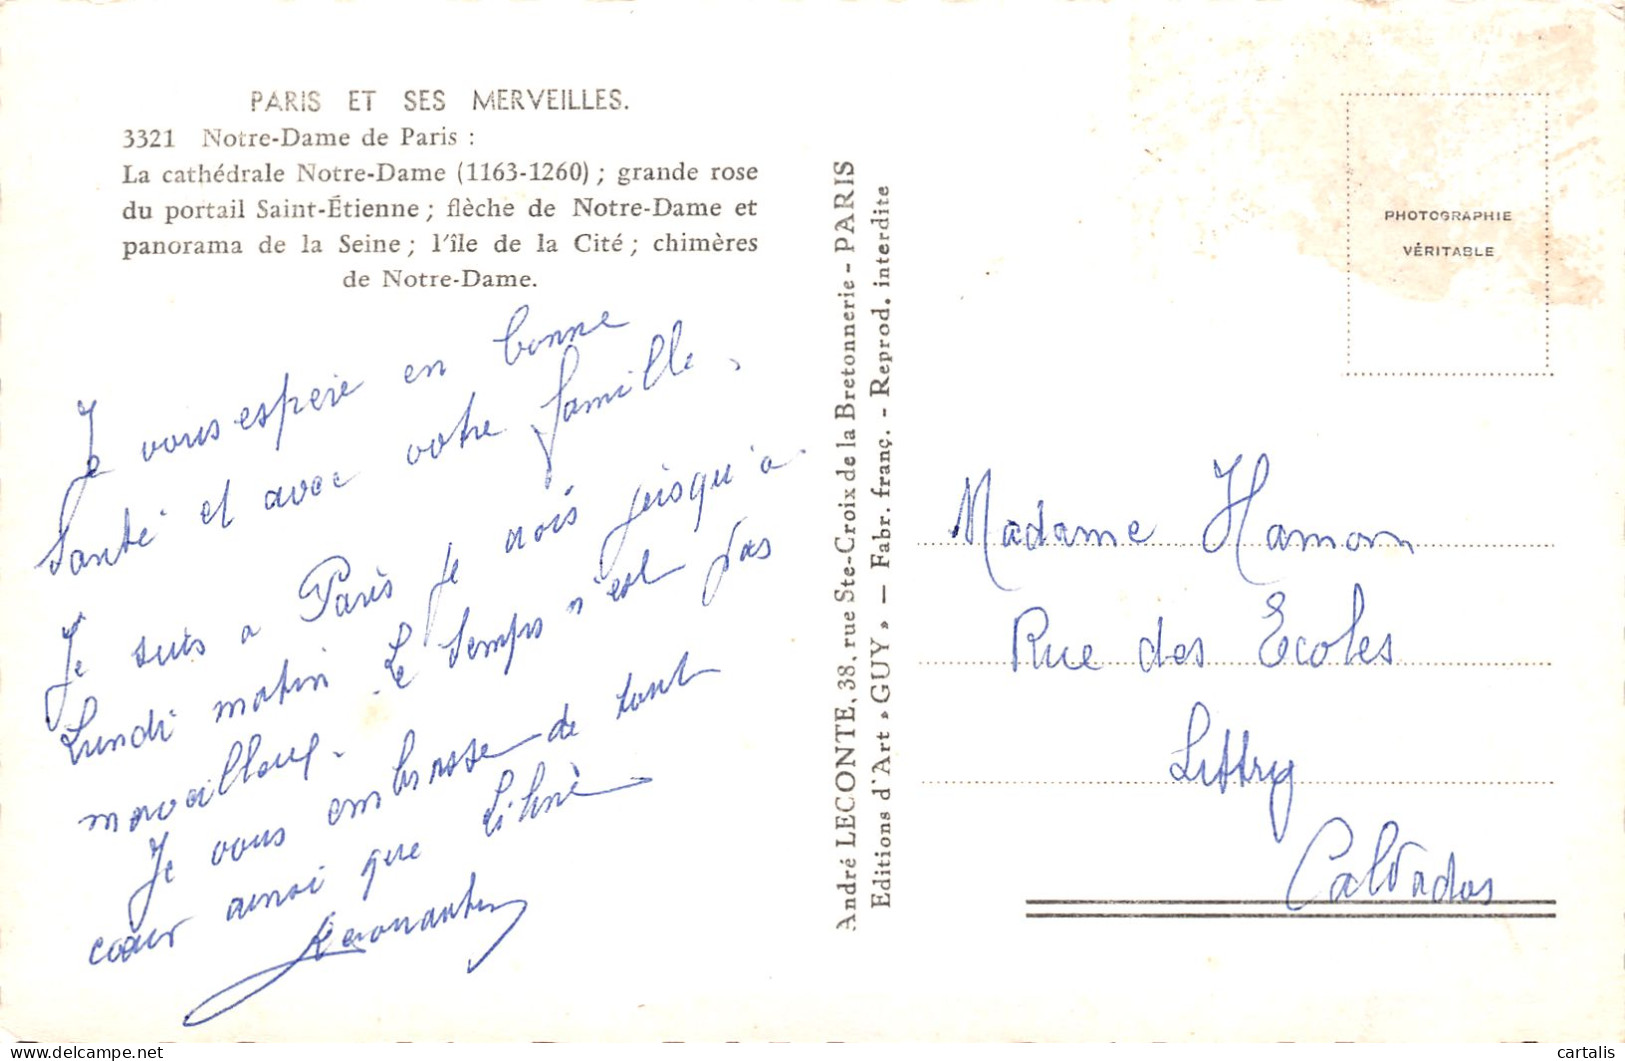 PARIS ET SES MERVEILLES.
3321 Notre-Dame de Paris :
La cathédrale Notre-Dame (1163-1260) ; grande rose
du portail Saint-Étienne ; flèche de Notre-Dame et
panorama de la Seine ; l'île de la Cité ; chimères
de Notre-Dame.
Je vous espère en bonne
Santé et avec votre famille.
Je suis a Paris Je jusqu'a
Lundi matin. Le temps n'est pas
merveilleux.
Je vous embrasse de tout
cœur ainsi que
André LECONTE, 38, rue Ste-Croix de la Bretonnerie - PARIS
Editions d'Art « GUY » — Fabr. franç. - Reprod. interdite
PHOTOGRAPHIE
VÉRITABLE
Madame Hamon
Rue des Ecoles
Littry
Calvados
cartalis